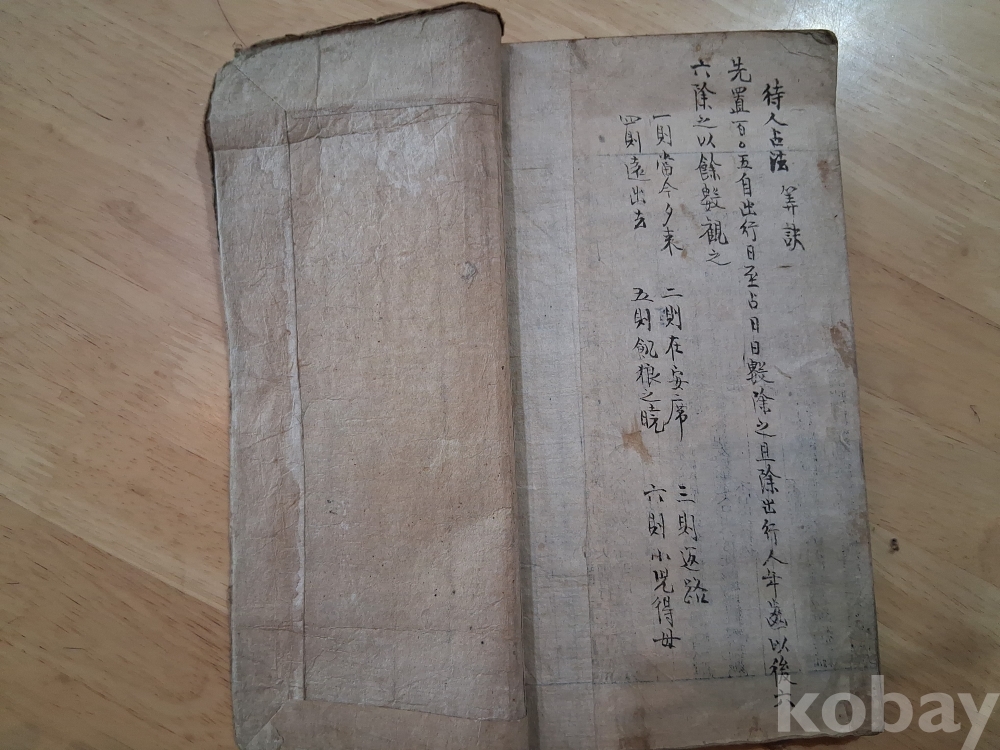 待人占法 筭訣
先置百〇五自出行日至占日日數除之且除出行人年齒以後六
六除之以餘數觀之
一則當今夕來 二則在安席 三則返路
四則遠出去 五則飢狼之 六則小兒得母
kobay